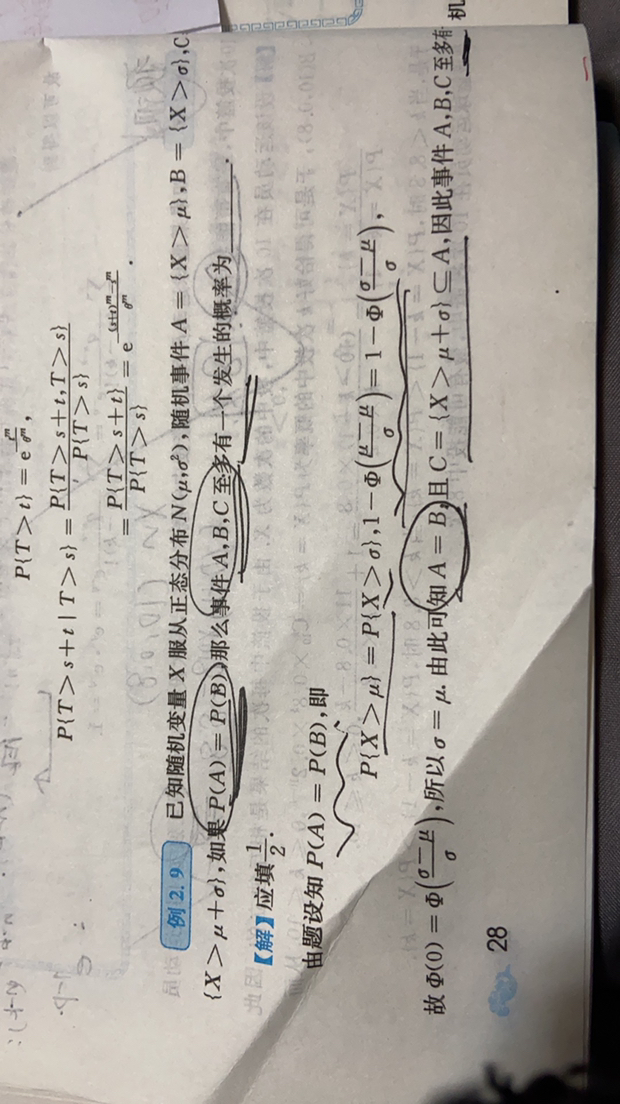 P{T > t} = e^{-\frac{t^m}{θ^m}},
P{T > s+t | T > s} = \frac{P{T > s+t, T > s}}{P{T > s}}
= \frac{P{T > s+t}}{P{T > s}} = e^{-\frac{(s+t)^m - s^m}{θ^m}}.
例 2.9 已知随机变量 X 服从正态分布 N(μ,σ²),随机事件 A = {X > μ},B = {X > σ},C
{X > μ+σ},如果 P(A) = P(B),那么事件 A,B,C 至多有一个发生的概率为______.
【解】应填\frac{1}{2}.
由题设知 P(A) = P(B),即
P{X > μ} = P{X > σ},1 − Φ(\frac{μ−μ}{σ}) = 1 − Φ(\frac{σ−μ}{σ}),
故 Φ(0) = Φ(\frac{σ−μ}{σ}),所以 σ = μ. 由此可知 A = B,且 C = {X > μ+σ} ⊆ A,因此事件 A,B,C 至多有
机
28